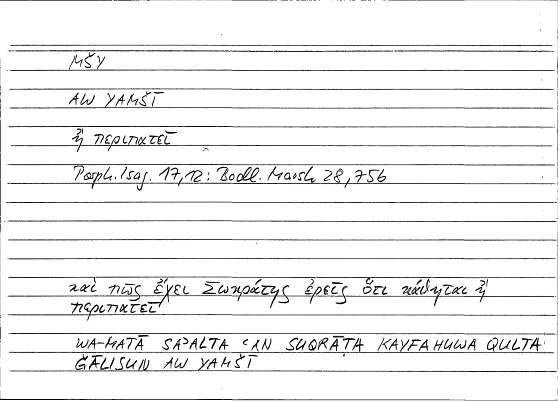 MŠY
AW YAMŠĪ
ἢ περιπατεῖ
Porph. Isag. 17,12: Bodl. Marsh 28,756
καὶ πῶς ἔχει Σωκράτης ἐρεῖς ὅτι κάθηται ἢ
περιπατεῖ
WA-MATĀ SAʾALTA ʿAN SUQRĀṬA KAYFA HUWA QULTA
ǦĀLISUN AW YAMŠĪ